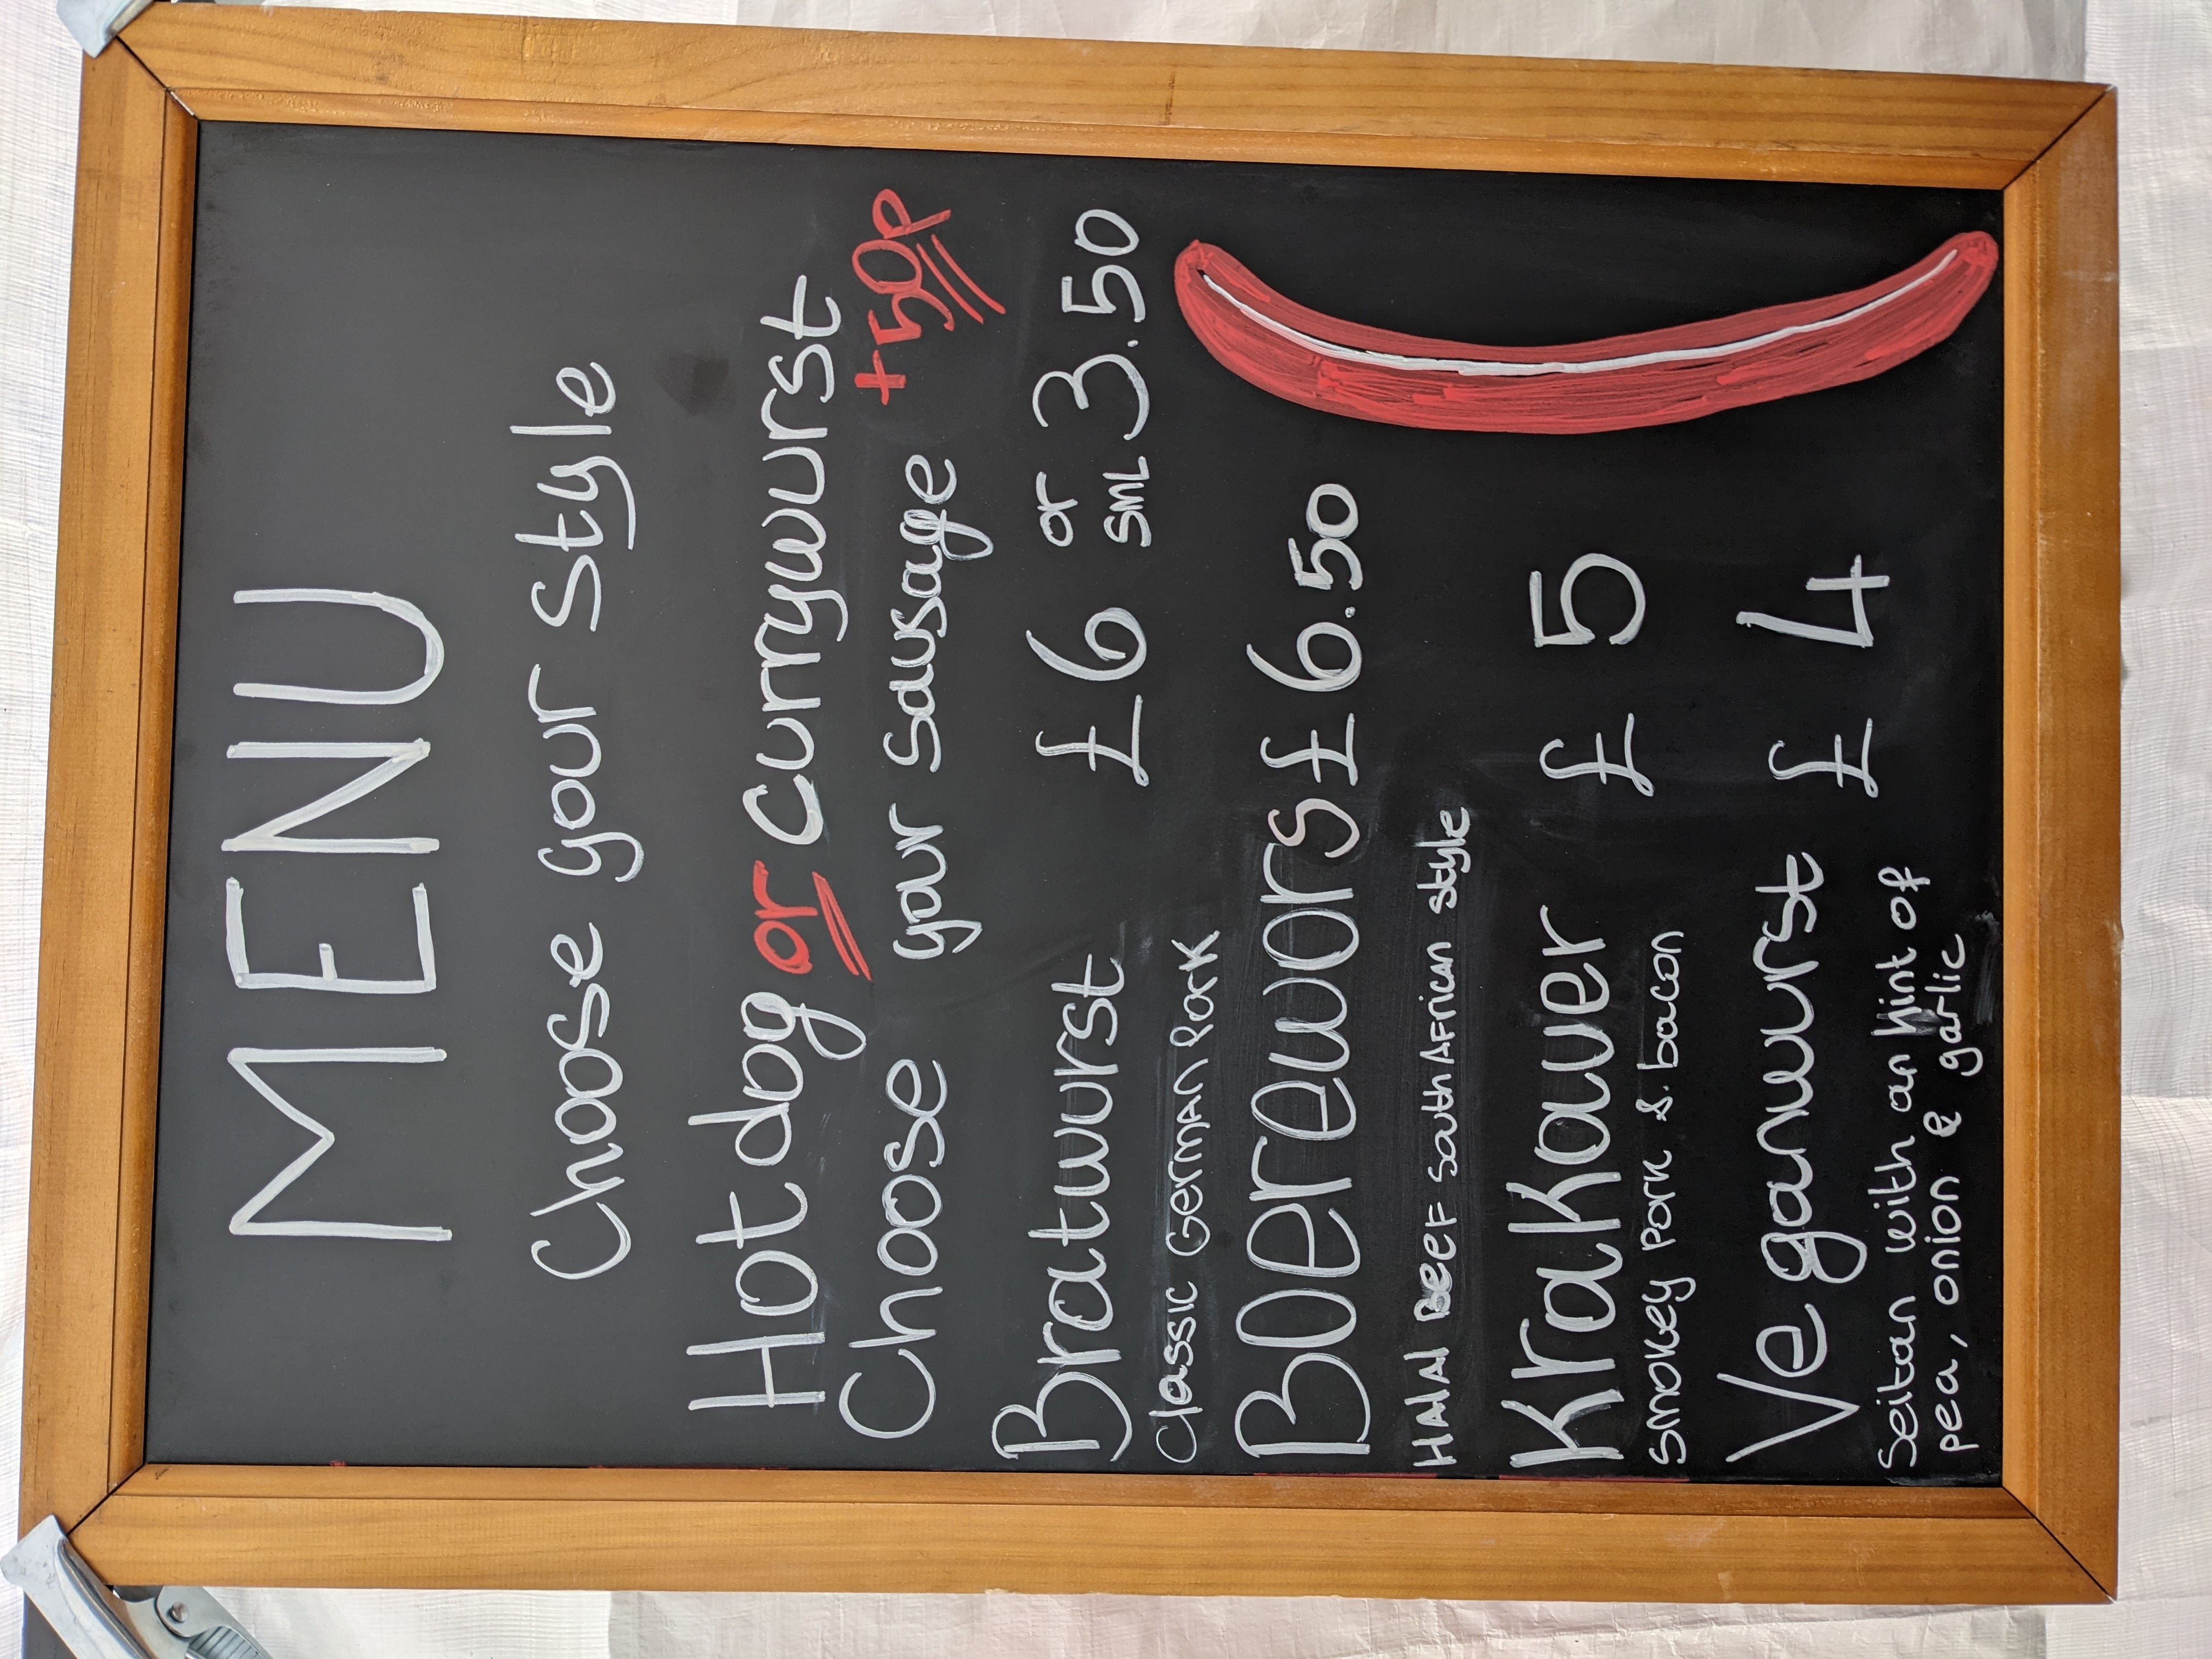 MENU
Choose your style
Hot dog or Currywurst
+50p
Choose your sausage
Bratwurst £6 or SML 3.50
Classic German Pork
Boerewors £6.50
HALAL BEEF South African style
Krakauer £5
smokey Pork & bacon
Veganwurst £4
Seitan with an hint of
pea, onion & garlic